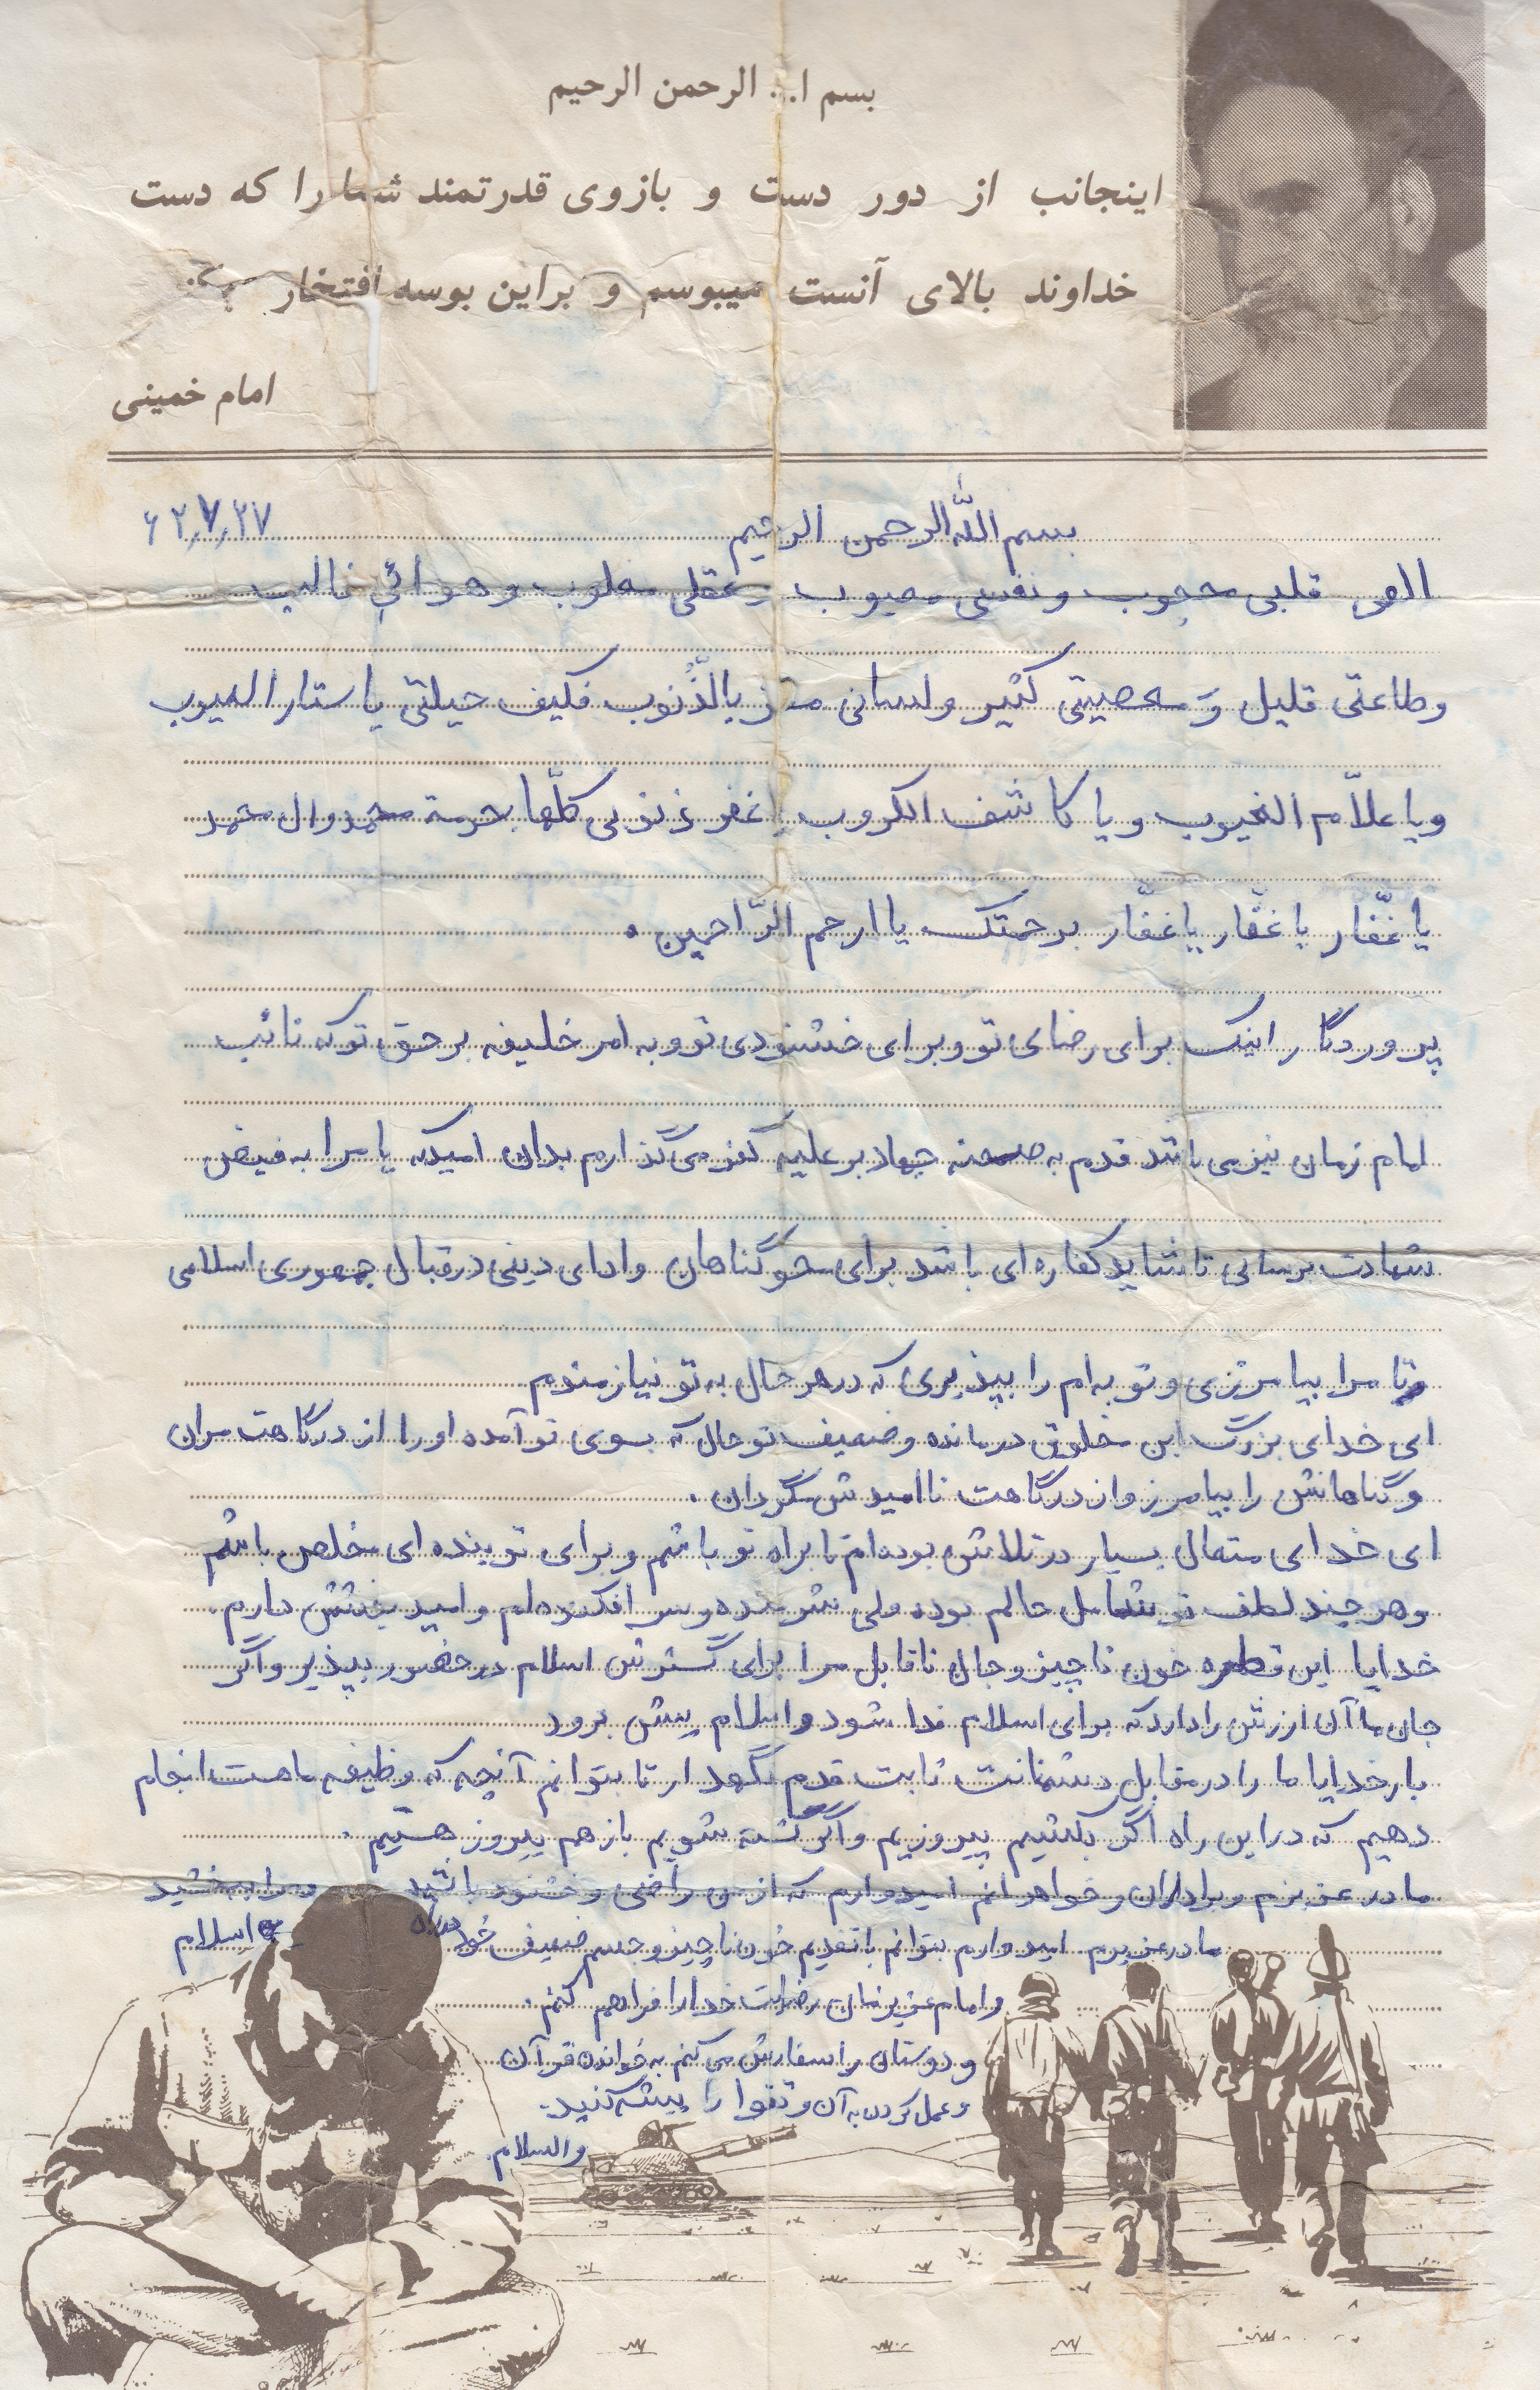 بسم ا... الرحمن الرحیم
اینجانب از دور دست و بازوی قدرتمند شما را که دست
خداوند بالای آنست میبوسم و براین بوسه افتخار
امام خمینی
۶۲٫۷٫۲۷
بسم الله الرحمن الرحیم
الهی قلبی محجوب و نفسی معیوب و عقلی مغلوب و هوائي غالب
و طاعتی قلیل وَ معصیتی کثیر و لسانی مقر بالذُّنوب فکیف حیلتی یا ستار العیوب
و یا علاّم الغیوب و یا کاشف الکروب اغفر ذنوبی کلّها بحرمة محمد و ال محمد
یا غفّار یا غفّار یا غفّار برحمتک یا ارحم الرّاحمین .
پروردگارا اینک برای رضای تو و برای خشنودی تو و به امر خلیفه بر حق تو که نائب
امام زمان نیز می باشد قدم به صحنه جهاد بر علیه کفر می گذارم بدان امیدکه یا مرا به فیض
شهادت برسانی تا شاید کفاره ای باشد برای محو گناهان و ادای دینی در قبال جمهوری اسلامی
و تا مرا بیامرزی و توبه ام را بپذیری که در هر حال به تو نیازمندم
ای خدای بزرگ این مخلوق درمانده و ضعیف تو حال که بسوی تو آمده او را از درگاهت مران
و گناهانش را بیامرز و از درگاهت ناامیدش مگردان .
ای خدای متعال بسیار در تلاش بوده ام تا براه تو باشم و برای تو بنده ای مخلص باشم
و هر چند لطف تو شامل حالم بوده ولی شرمنده و سر افکنده ام و امید بخشش دارم .
خدایا این قطره خون ناچیز و جان ناقابل مرا برای گسترش اسلام در حضور بپذیر و اگر
جان ما آن ارزش را دارد که برای اسلام فدا شود و اسلام پیش برود
بار خدایا ما را در مقابل دشمنانت ثابت قدم نگهدار تا بتوانم آنچه که وظیفه ماهست انجام
دهیم که در این راه اگر بکشیم پیروزیم و اگر کشته شویم باز هم پیروز هستیم .
مادر عزیزم و برادران و خواهرانم امیدوارم که از من راضی و خشنود باشید و مرا ببخشید
مادر عزیزم امیدوارم بتوانم با تقدیم خون ناچیز و جسم ضعیف خود در راه اسلام
و امام عزیزمان رضایت خدا را فراهم کنم .
و دوستان را سفارش می کنم به خواندن قرآن
و عمل کردن به آن و تقوا را پیشه کنید.
والسلام.